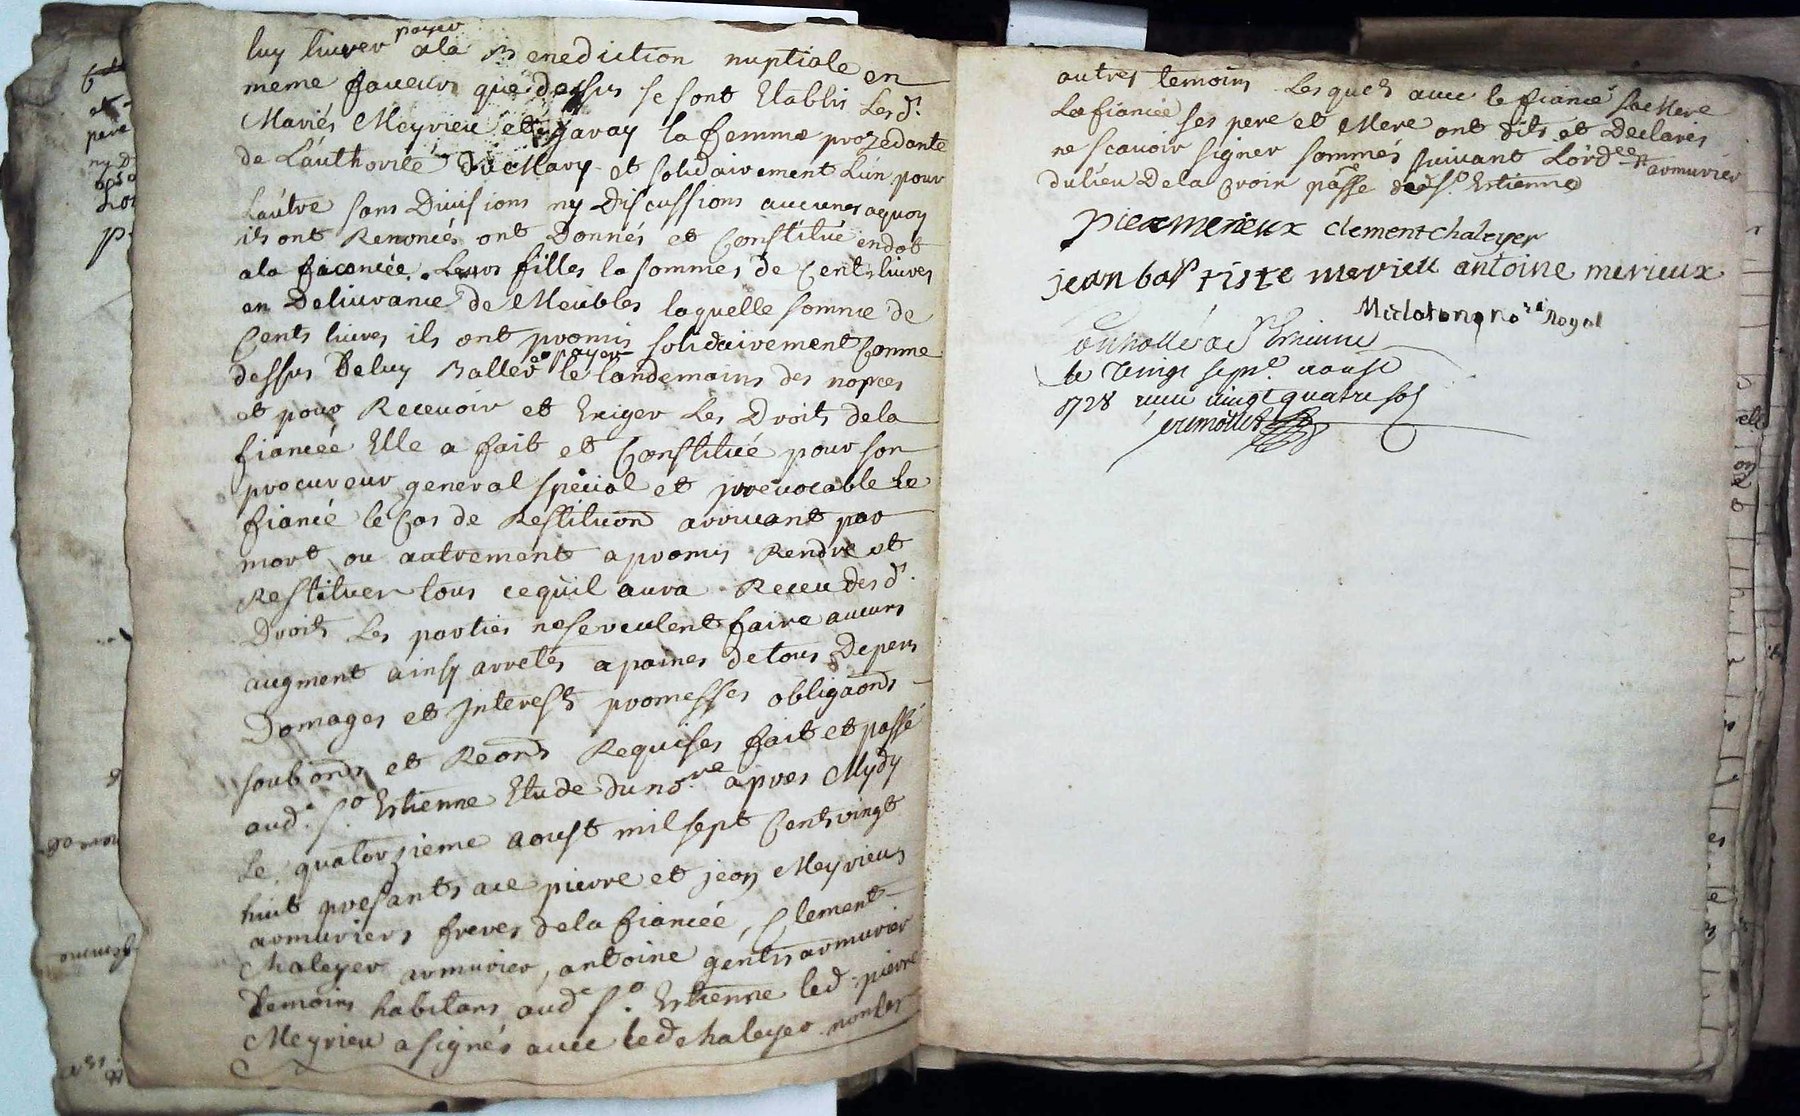 luy livrer payer
ala Benediction nuptiale en
meme faveur que dessus se sont Etablis Les d.
Mariés Meyrieu et Javay la femme prozedante
de L'authorité Du Mary et solidairement L'un pour
L'autre sans Divisions ny Discussions aucunes aquoy
ils ont Renoncés ont Donnés et Constitué endot
ala fiancée Leurs filles la sommes de Cents livres
en Delivrance de Meubles laquelle somme de
Cents livres ils ont promis solidairement Comme
dessus De luy Baller et payer le landemains des nopces
et pour Recevoir et Exiger Les Droits dela
fiancée Elle a fait et Constitué pour son
procureur general special et jrrevocable Le
fiancé le Cas de Restituon arrivant par
mort ou autrement a promis Rendre et
Restituer tous cequil aura Receu des d.
Droits Les parties nese veulent faire aucuns
augment ainsy arretés apaines detous Depens
Domages et Interests promesses obligaons
soubons et Reons Requises fait et passé
aud. St. Estienne Etude du no.re apres Mydy
Le quatorzieme aoust mil sept Cents vingt
huit presants ace pierre et jean Meyrieux
armuriers freres dela fiancée, Clement
Chaleyer armurier, antoine gentis armurier
Temoins habitans aud. St. Estienne led. pierre
Meyrieu a signés avec led Chaleyer non les
autres temoins Lesquels avec le fiancé sa Mere
La fiancée ses pere et Mere ont dits et Declarés
ne scavoir signer sommés suivant L'ordce
armurier
du lieu Dela Croix passe St. Estienne
pierre merieux clement chaleyer
jean baptiste merieu antoine merieux
no.re Royal
Controllé a St Etienne
le vingt aoust
1728 receu vingt quatre sols